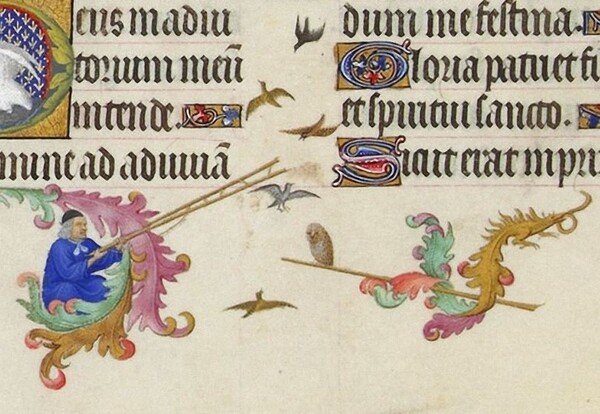 eus in adiu
torium meū
intende.
mine ad adiuuā
dum me festina.
Gloria patri et fi
et spiritui sancto.
Sicut erat in pri